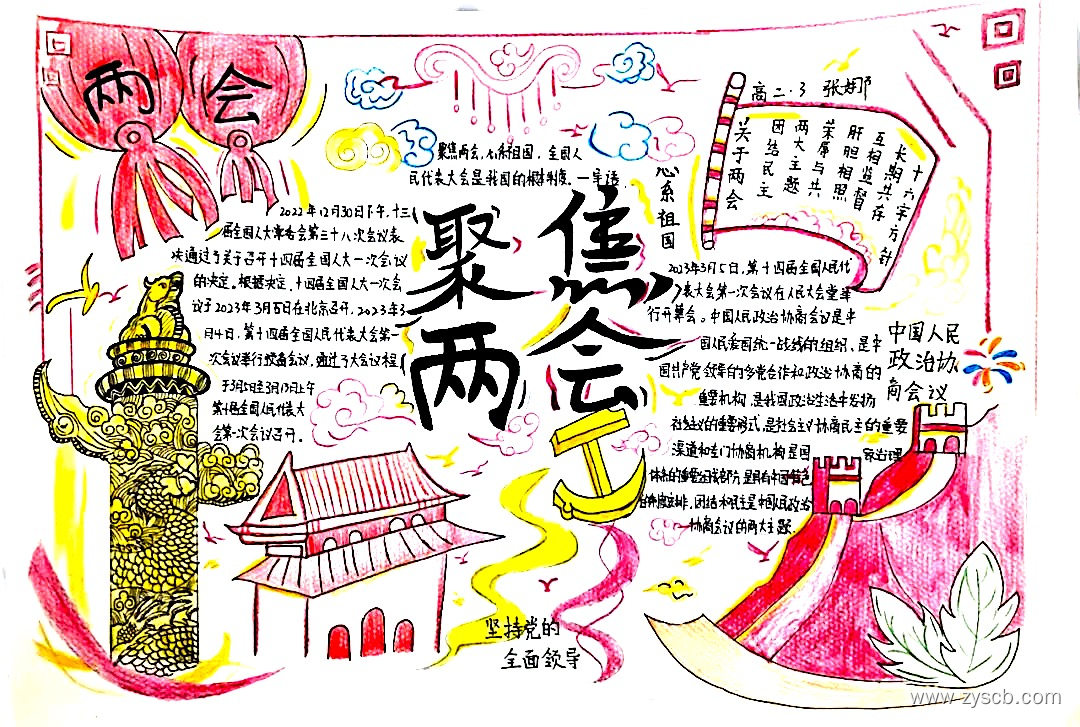 两会
高二·3
关于两会
团结民主
两大主题
荣辱与共
肝胆相照
互相监督
长期共存
十六字方针
聚焦两会,心系祖国,全国人
民代表大会是我国的根本制度。—导语
心系祖国
聚焦
两会
2022年12月30日下午,十三
届全国人大常委会第三十八次会议表
决通过了关于召开十四届全国人大一次会议
的决定。根据决定,十四届全国人大一次会
议于2023年3月5日在北京召开。2023年3
月4日,第十四届全国人民代表大会第一
次会议举行预备会议,通过了大会议程
于3月5日至3月13日上午
第十四届全国人民代表大
会第一次会议召开.
2023年3月5日,第十四届全国人民代
表大会第一次会议在人民大会堂举
行开幕会。中国人民政治协商会议是中
国人民爱国统一战线的组织、是中
国共产党领导的多党合作和政治协商的
重要机构,是我国政治生活中发扬
社会主义的重要形式,是社会主义协商民主的重要
渠道和专门协商机构是国家治理
体系的重要组成部分,是具有中国特色
的制度安排,团结和民主是中国人民政治
协商会议的两大主题.
中国人民
政治协
商会议
坚持党的
全面领导
www.zyscb.com